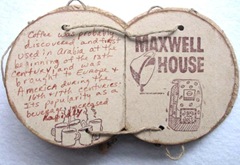 Coffee was probably
discovered and first
used in Arabia at the
beginning of the 15th
century and was
brought to Europe &
America during the
16th & 17th centuries.
Its popularity as a
beverage increased
Rapidly
MAXWELL
HOUSE